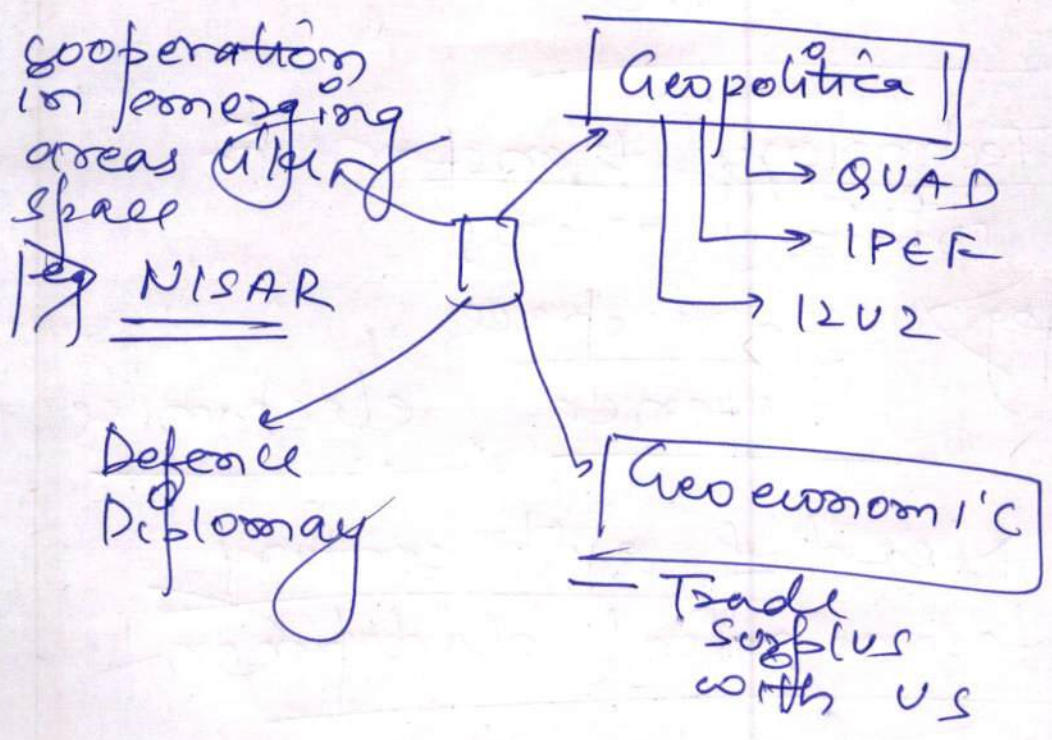 cooperation
in emerging
areas like
space
eg NISAR
Geopolitica
QUAD
IPEF
I2U2
Defence
Diplomay
Geoeconomic
- Trade
surplus
with US